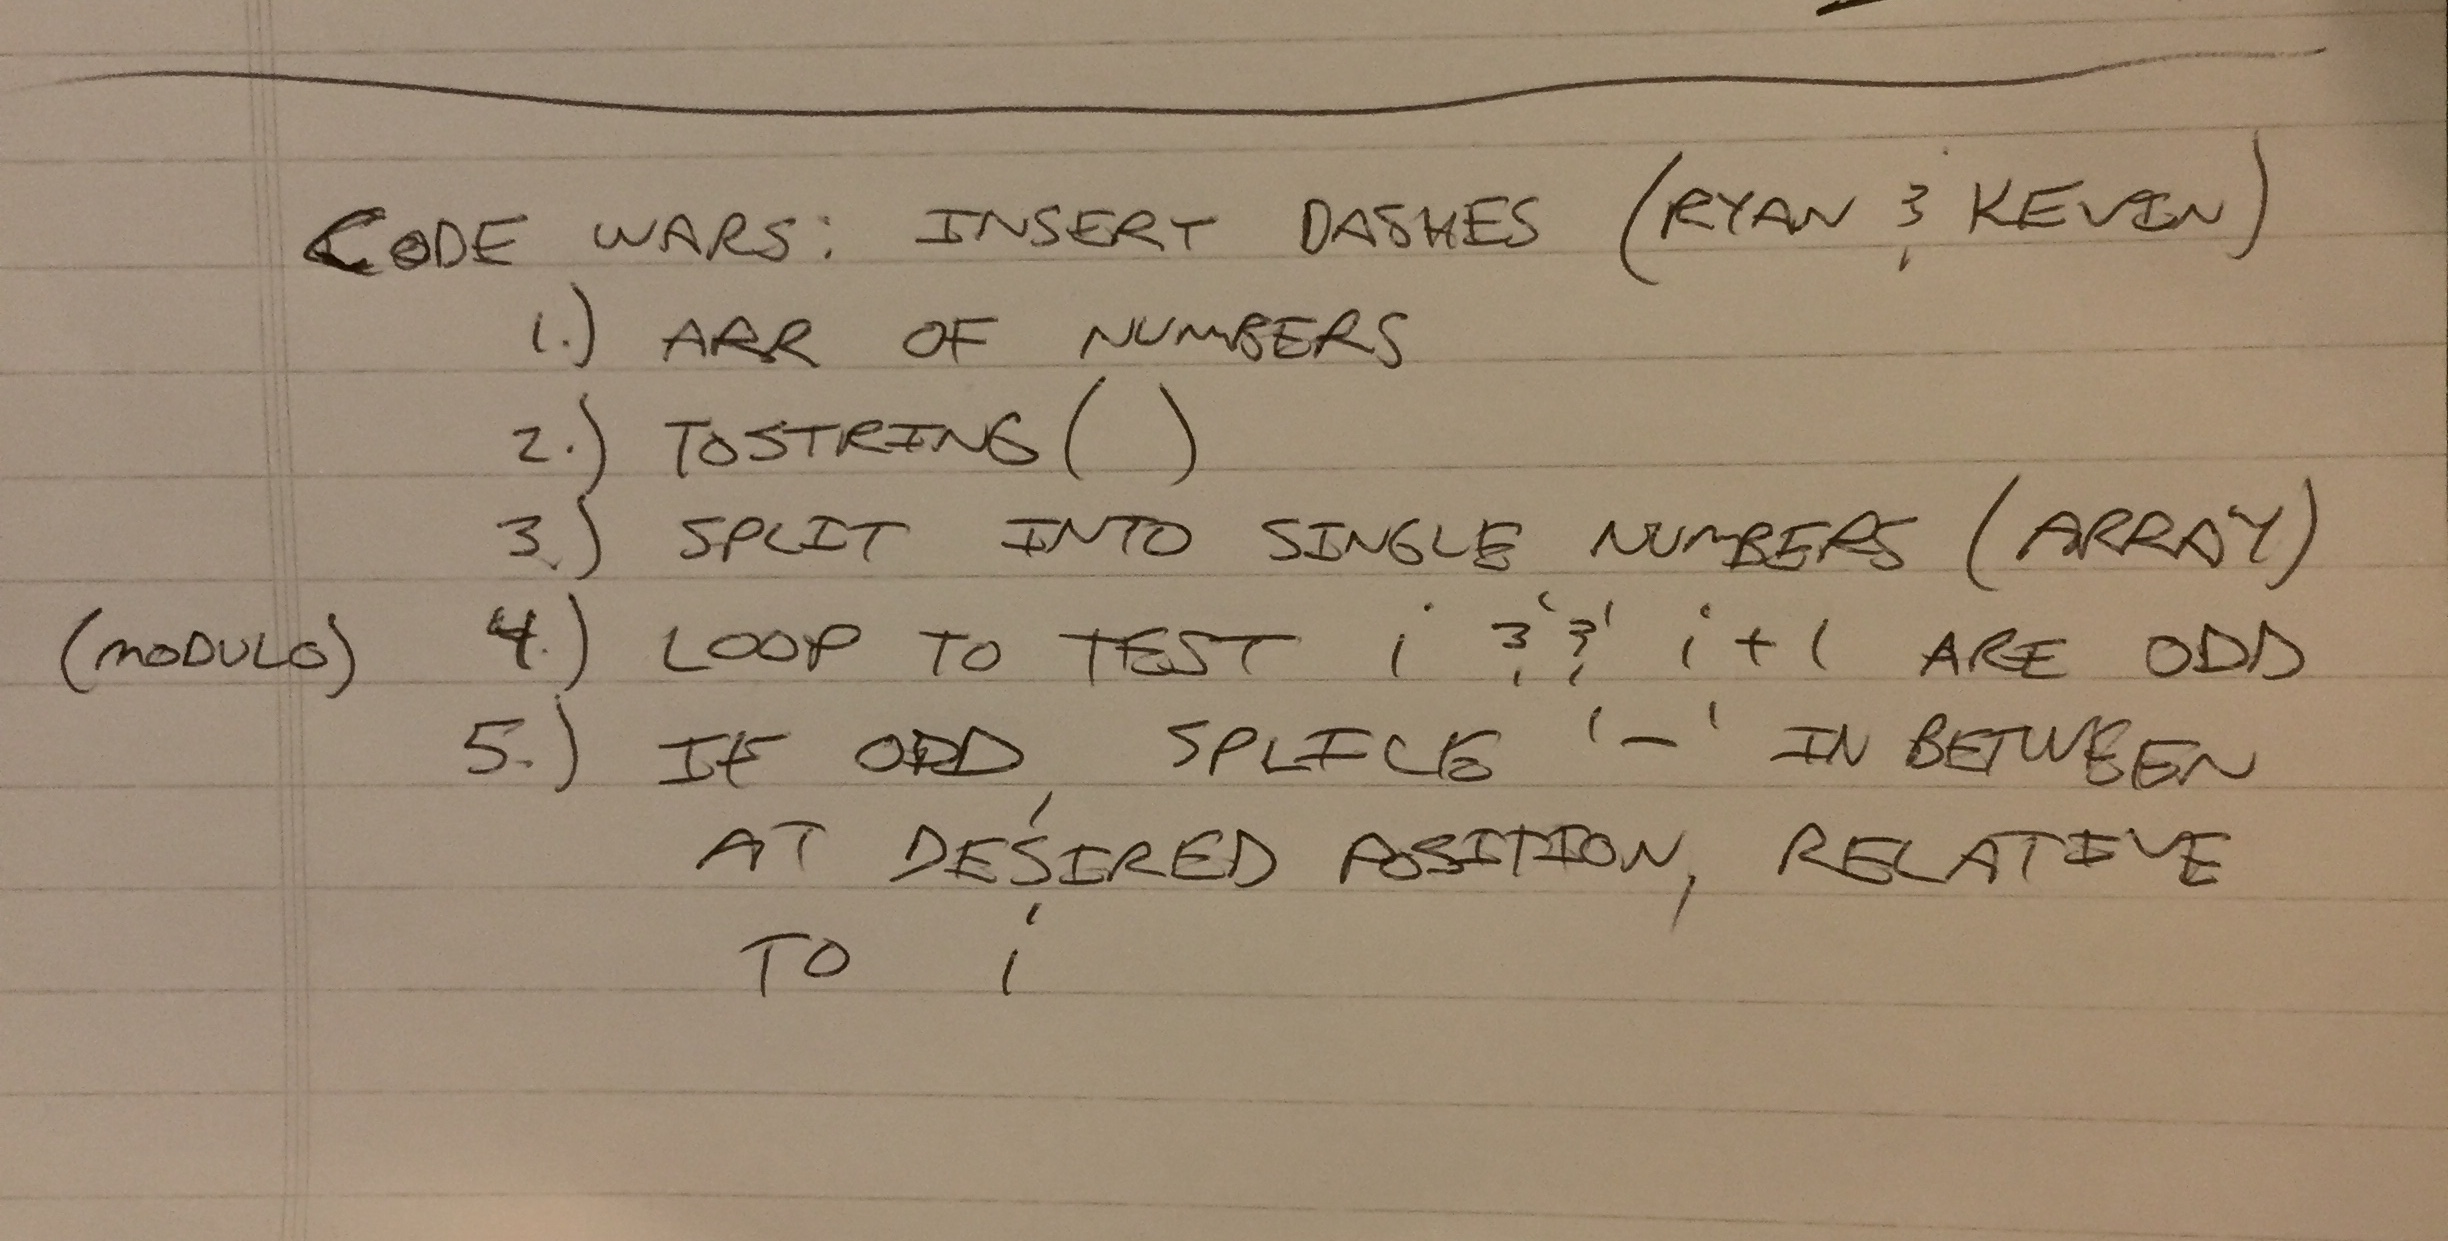 CODE WARS: INSERT DASHES (RYAN & KEVIN)
1.) ARR OF NUMBERS
2.) TOSTRING( )
3.) SPLIT INTO SINGLE NUMBERS (ARRAY)
(MODULO) 4.) LOOP TO TEST i && i+1 ARE ODD
5.) IF ODD, SPLICE '-' IN BETWEEN
AT DESIRED POSITION, RELATIVE
TO i